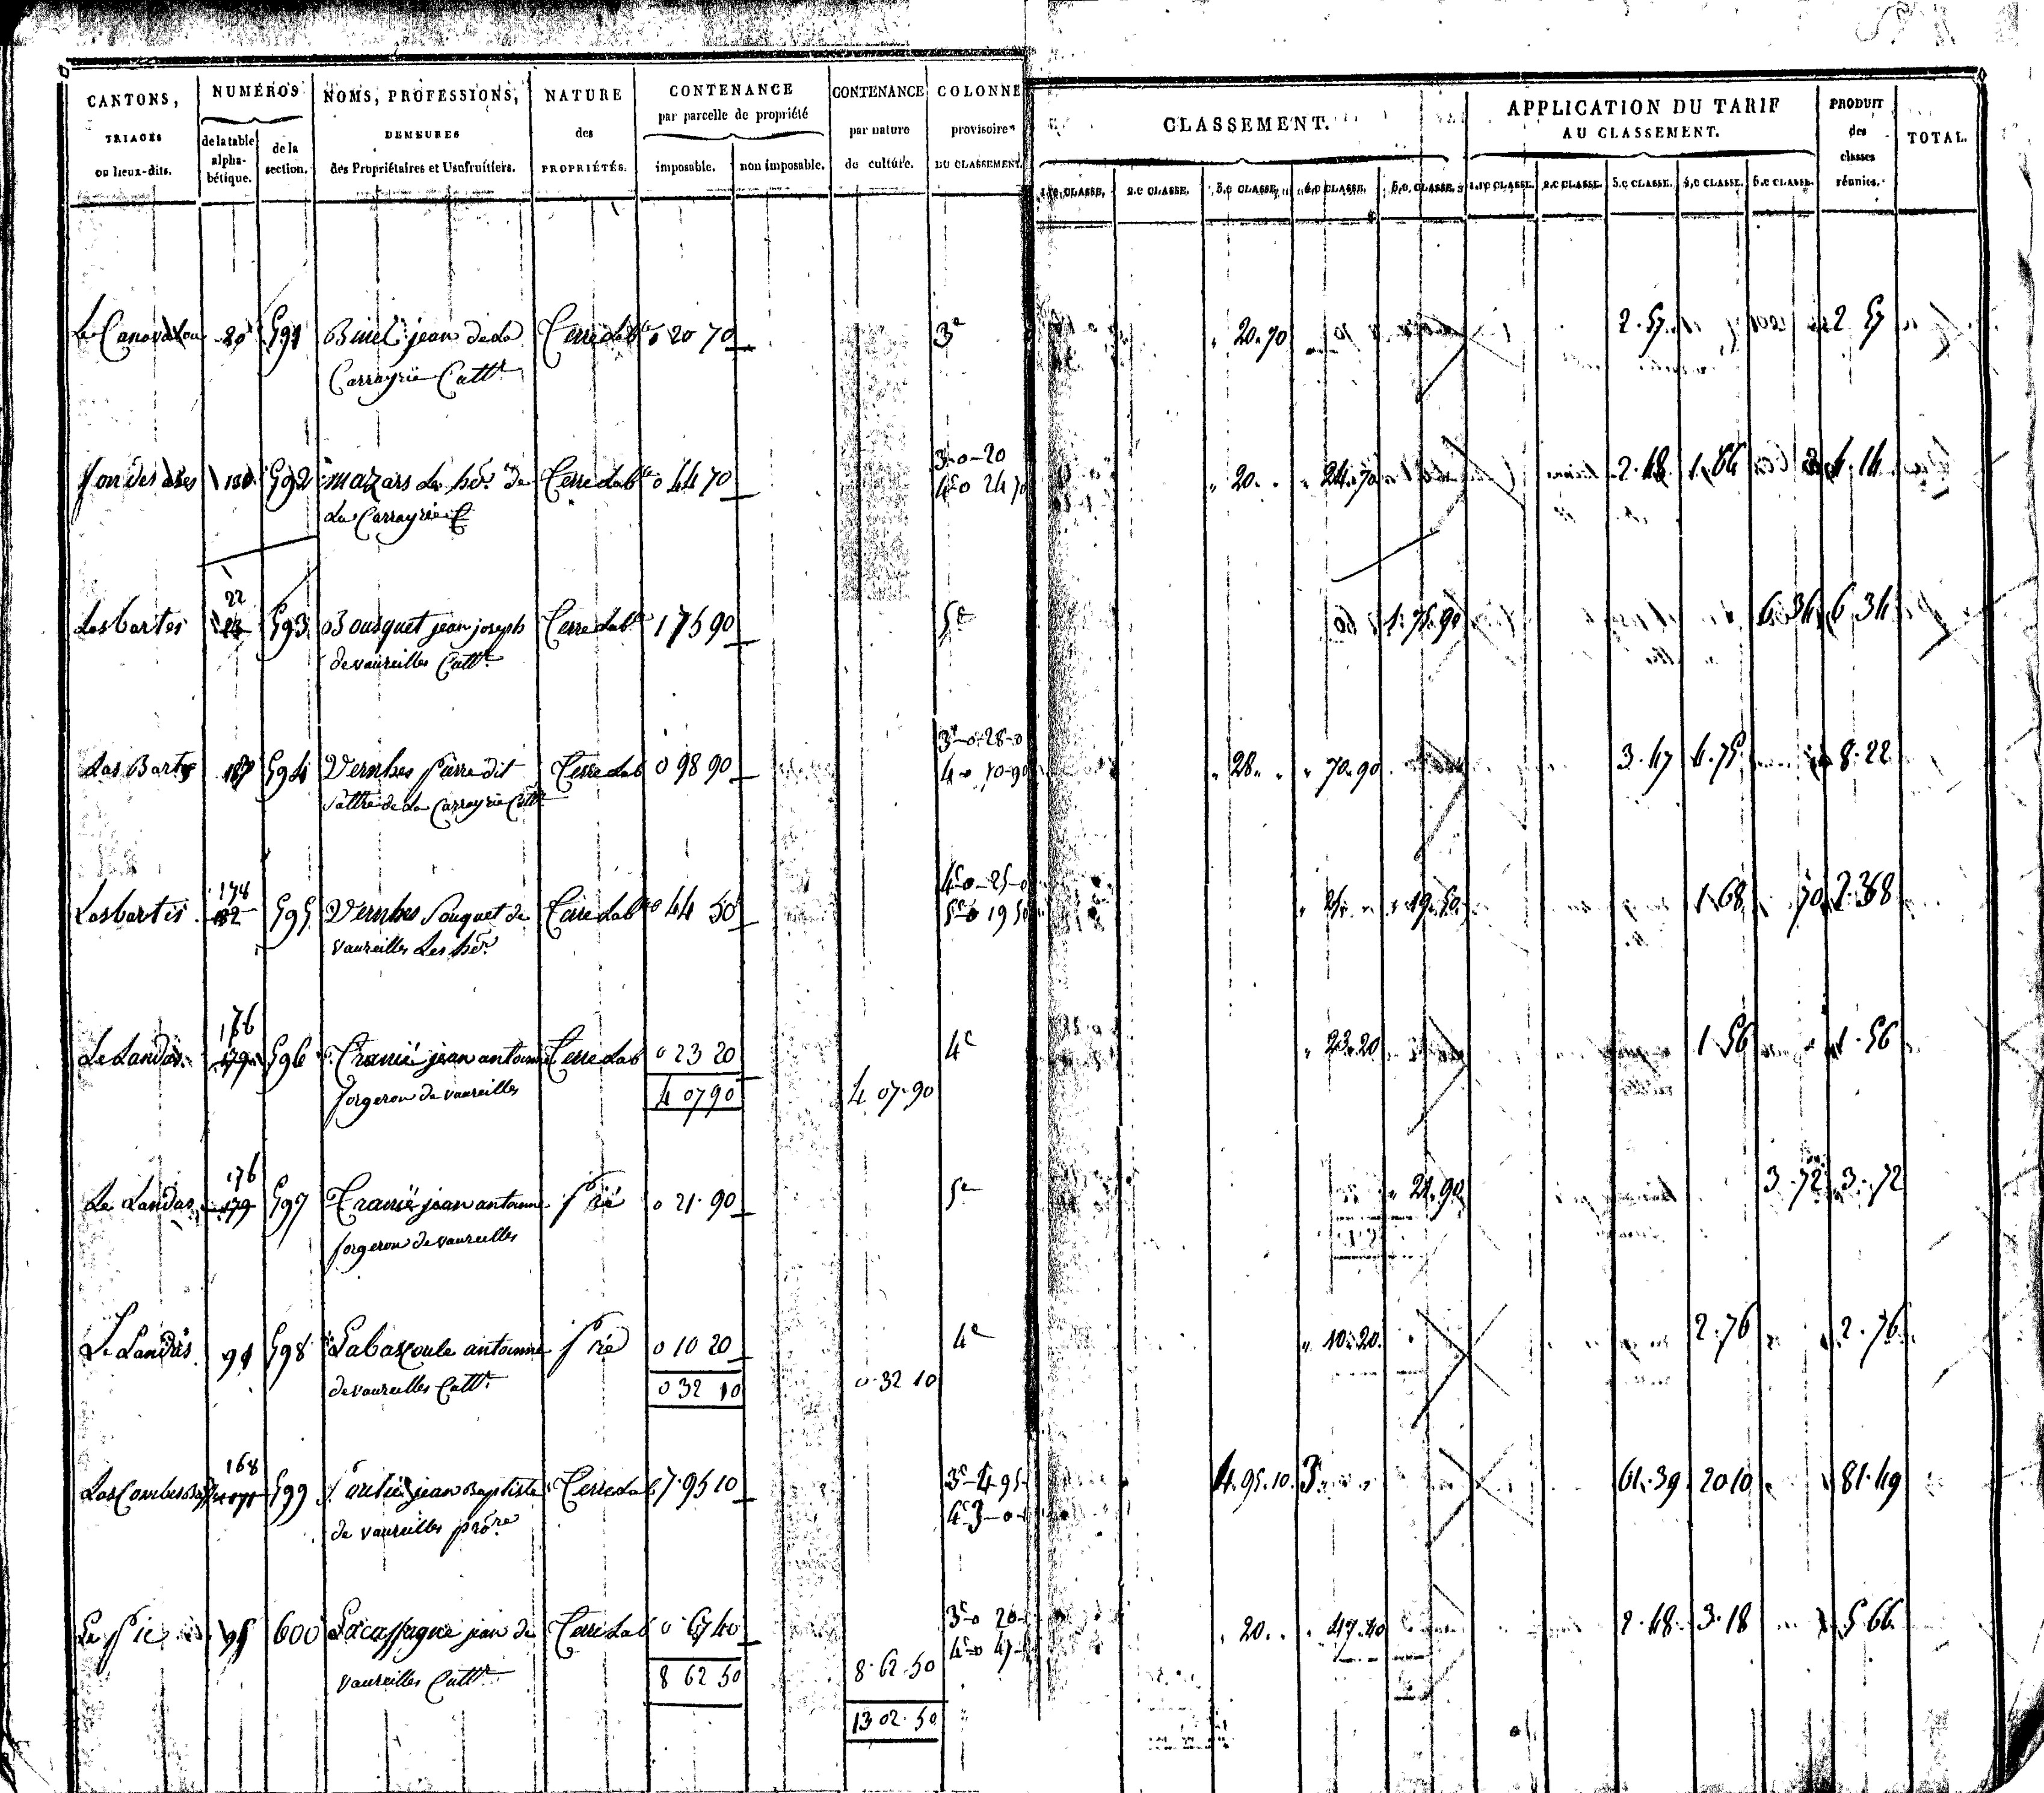 CANTONS, TRIAGES ou lieux-dits.
NUMÉROS de la table alphabétique. de la section.
NOMS, PROFESSIONS, DEMEURES des Propriétaires et Usufruitiers.
NATURE des PROPRIÉTÉS.
CONTENANCE par parcelle de propriété imposable. non imposable.
CONTENANCE par nature de culture.
COLONNE provisoire DU CLASSEMENT.
CLASSEMENT. 1.re CLASSE. 2.e CLASSE. 3.e CLASSE. 4.e CLASSE. 5.e CLASSE.
APPLICATION DU TARIF AU CLASSEMENT. 1.re CLASSE. 2.e CLASSE. 3.e CLASSE. 4.e CLASSE. 5.e CLASSE.
PRODUIT des classes réunies.
TOTAL.
20 591 jean de la Terre lab.le 0 20 70 3e 20.70 2.57 2 57
Carrayrie Catt.r
592 mazars les hér. de Terre lab.le 0 44 70 3 0-20 20. 24.70 2.48 1.66 4.14
la Carrayrie 4e 0 24 70
22
Las bartes 593 Bousquet jean joseph Terre lab.le 1 75 90 5e 1.75.90 6.34 6 34
de vaureilles Catt.r
3e-0-28-0
Las Bartes 187 594 Vernhes Pierre dit Terre lab 0 98 90 4-0 70-90 28. 70.90 3.47 4.75 8.22
de la Carrayrie Catt.r
178 4e 0-25-0
Las bartes 182 595 Vernhes de Terre lab.le 0 44 50 5e 0 19 50 25. 19.50 1.68 70 2.38
vaureilles Les hér.
176
Le Landas 179 596 Tranié jean antoine Terre lab 0 23 20 4e 23.20 1.56 1.56
forgeron de vaureilles 4 07 90 4 07.90
176
Le Landas 179 597 Tranié jean antoine Pré 0 21.90 5e 21.90 3.72 3.72
forgeron de vaureilles
Le Landas 91 598 Labascoule antoine Pré 0 10 20 4e 10.20 2.76 2.76
de vaureilles Catt.r 0 32 10 0.32 10
168
Las Combes 599 jean Baptiste Terre lab 7.95 10 3e-4 95 4.95.10 3 61.39 20 10 81.49
de vaureilles pro.re 4e 3-0
3e-0 20
Le Pic 95 600 Lacassagne jean de Terre lab 0.67 40 4e-0 47 20. 47.40 2.48 3.18 5.66
vaureilles Catt.r 8 62 50 8.62.50
13 02.50